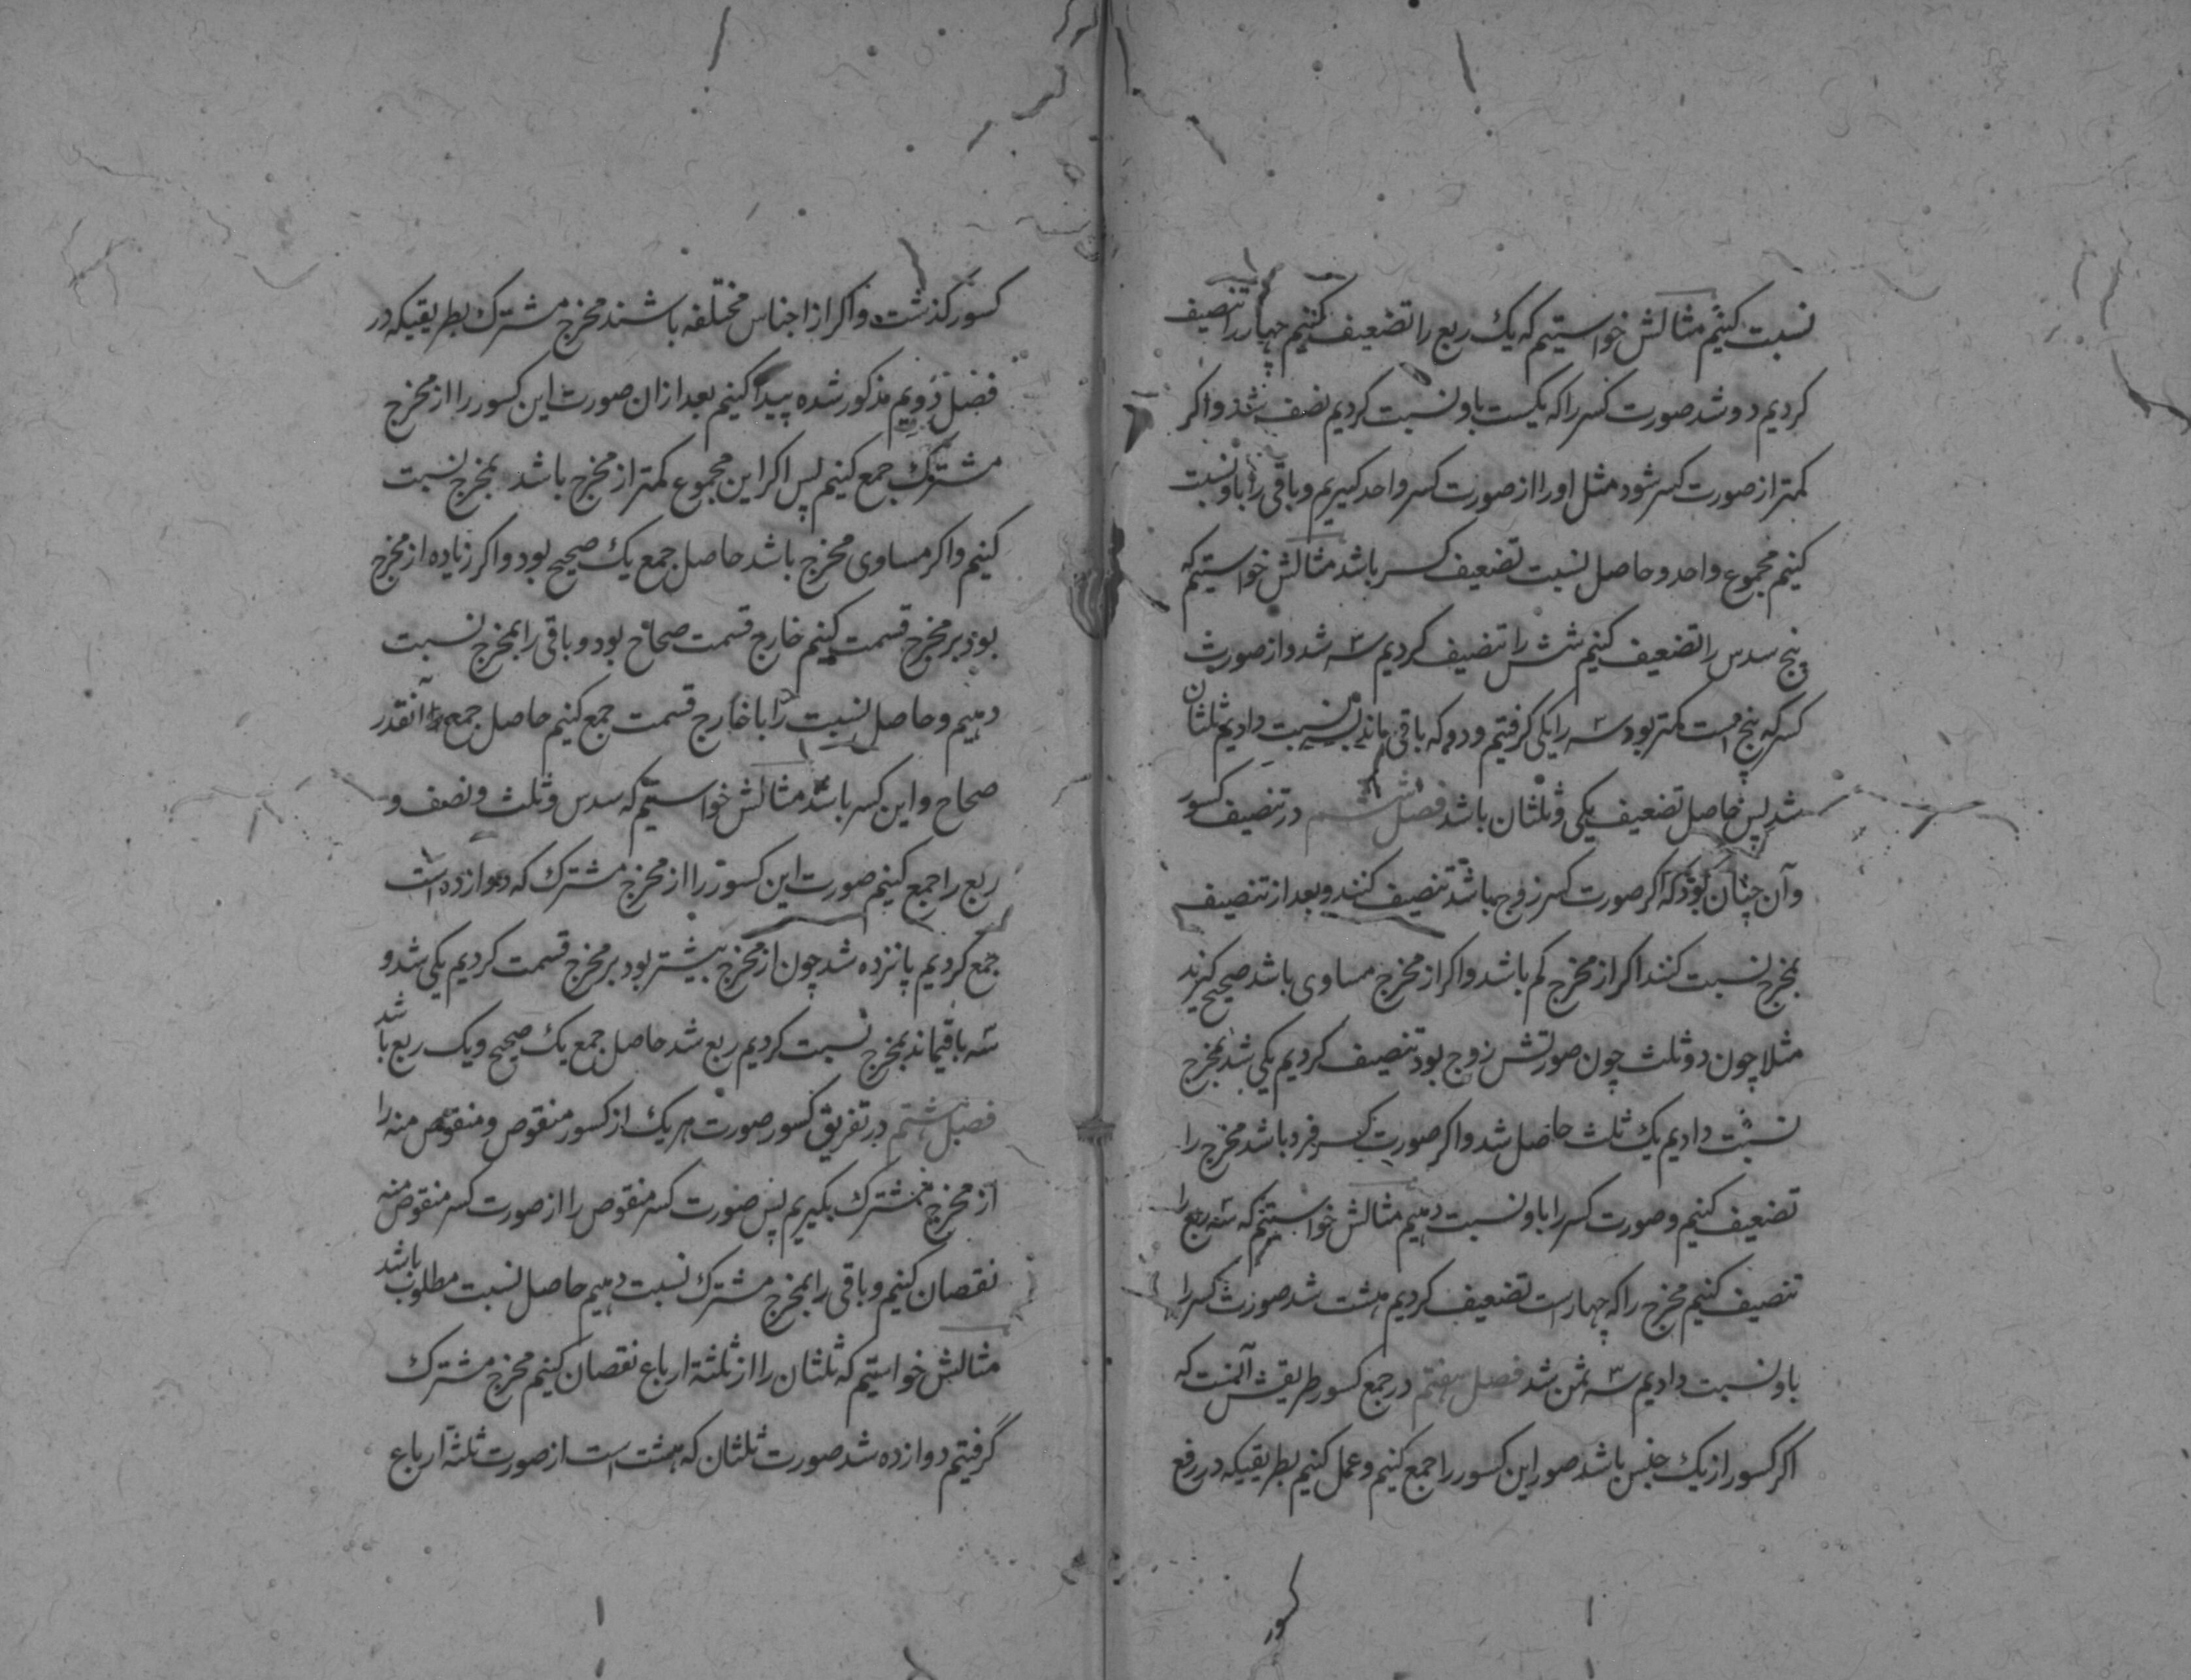 نسبت کنیم مثالش خواستیم که یک ربع را تضعیف کنیم چهار را تنصیف
کردیم دو شد صورت کسر را که یکست باو نسبت کردیم نصف شد و اکر
کمتر از صورت کسر شود مثل او را از صورت کسر واحد کیریم و باقی را باو نسبت
کنیم مجموع واحد و حاصل نسبت تضعیف کسر باشد مثالش خواستیم که
پنج سدس را تضعیف کنیم شش را تنصیف کردیم سه شد و از صورت
کسر که پنج است کمتر بود سه را یکی کرفتیم و دو که باقی ماند نسبت دادیم ثلثان
شد پس حاصل تضعیف یکی و ثلثان باشد فصل ششم در تنصیف کسور
و آن چنان بود که اکر صورت کسر زوج باشد تنصیف کنند و بعد از تنصیف
بمخرج نسبت کنند اکر از مخرج کم باشد و اکر از مخرج مساوی باشد صحیح کیرند
مثلا چون دو ثلث چون صورتش زوج بود تنصیف کردیم یکی شد بمخرج
نسبت دادیم یک ثلث حاصل شد و اکر صورت کسر فرد باشد مخرج را
تضعیف کنیم و صورت کسر را باو نسبت دهیم مثالش خواستیم که سه ربع را
تنصیف کنیم مخرج را که چهارست تضعیف کردیم هشت شد صورت کسر را
باو نسبت دادیم سه ثمن شد فصل هفتم در جمع کسور طریقش آنست که
اکر کسور از یک جنس باشد صور این کسور را جمع کنیم و عمل کنیم بطریقیکه در رفع
کسور
کسور کذشت و اکر از اجناس مختلفه باشند مخرج مشترک بطریقیکه در
فصل دویم مذکور شده پیدا کنیم بعد از ان صورت این کسور را از مخرج
مشترک جمع کنیم پس اکر این مجموع کمتر از مخرج باشد بمخرج نسبت
کنیم و اکر مساوی مخرج باشد حاصل جمع یک صحیح بود و اکر زیاده از مخرج
بود بر مخرج قسمت کنیم خارج قسمت صحاح بود و باقی را بمخرج نسبت
دهیم و حاصل نسبت را با خارج قسمت جمع کنیم حاصل جمع آنقدر
صحاح و این کسر باشد مثالش خواستیم که سدس و ثلث و نصف و
ربع را جمع کنیم صورت این کسور را از مخرج مشترک که دوازده است
جمع کردیم پانزده شد چون از مخرج بیشتر بود بر مخرج قسمت کردیم یکی شد و
سه باقیماند بمخرج نسبت کردیم ربع شد حاصل جمع یک صحیح و یک ربع باشد
فصل هشتم در تفریق کسور صورت هر یک از کسور منقوص و منقوص منه را
از مخرج مشترک بکیریم پس صورت کسر منقوص را از صورت کسر منقوص منه
نقصان کنیم و باقی را بمخرج مشترک نسبت دهیم حاصل نسبت مطلوب باشد
مثالش خواستیم که ثلثان را از ثلثة ارباع نقصان کنیم مخرج مشترک
گرفتیم دوازده شد صورت ثلثان که هشت است از صورت ثلثة ارباع